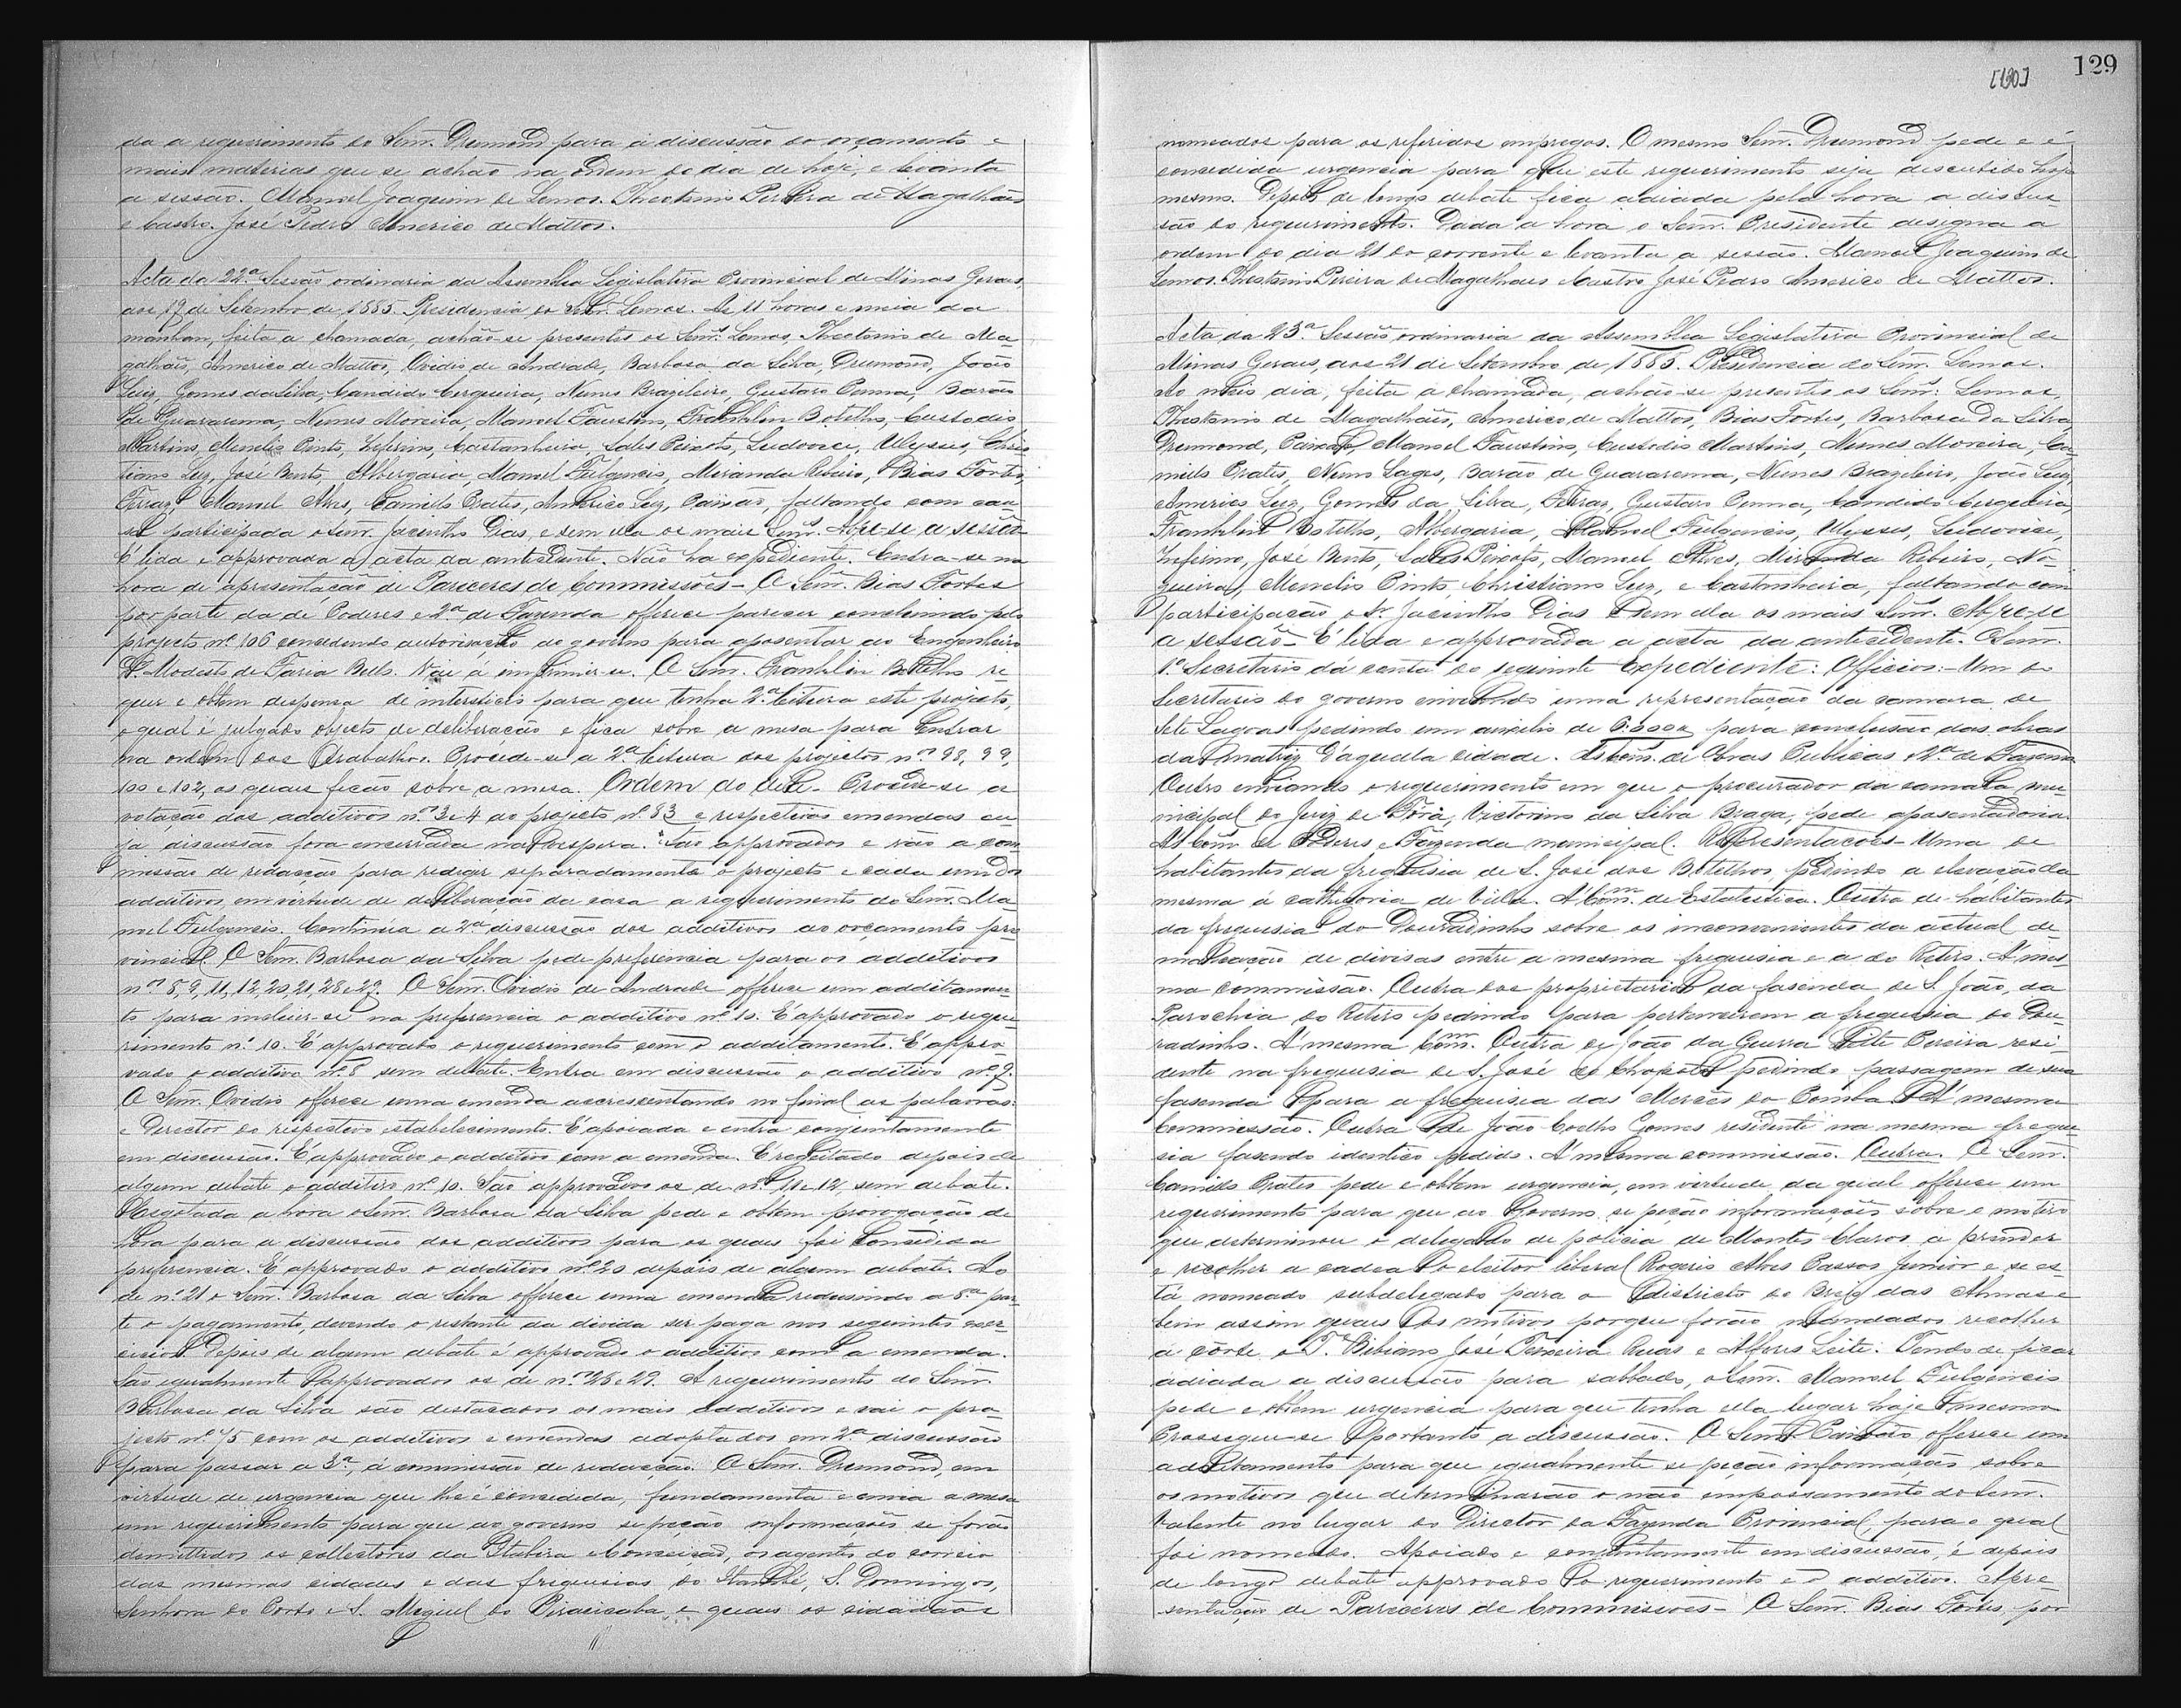 da a requerimento do Senr. Drumond para a discussão do orçamento e
mais materias que se achão na ordem do dia de hoje, e levanta
a sessão. Manoel Joaquim de Lemos. Theotonio Pereira de Magalhães
e Castro. José Pedro Americo de Mattos.
Acta da 22ª Sessão ordinaria da Assemblea Legislativa Provincial de Minas Geraes,
aos 19 de Setembro de 1885. Presidencia do Senr. Lemos. As 11 horas e meia da
manhan, feita a chamada, achão-se presentes os Senrs. Lemos, Theotonio de Ma
galhães, Americo de Mattos, Ovidio de Andrade, Barbosa da Silva, Drumond, João
Luiz, Gomes da Silva, Candido Cerqueira, Nunes Brazileiro, Gustavo Penna, Barão
de Guararema, Nunes Moreira, Manoel Faustino, Franklin Botelho, Custodio
Martins, Menelio Pinto, Zeferino, Castanheira, Sales Peixoto, Ludovice, Ulysses, Chris
tiano Luz, José Bento, Albergaria, Manoel Fulgencio, Miranda Ribeiro, Bias Fortes,
Ferraz, Manoel Alves, Camillo Prates, Americo Luz, Paixão, faltando com cau
sa participada o Senr. Jacintho Dias, e sem ella os mais Senrs. Abre-se a sessão
É lida e approvada a acta da antecedente. Não ha expediente. Entra-se na
hora de apresentação de Pareceres de Commissões - O Senr. Bias Fortes
por parte da de Poderes e 2ª de Fazenda offerece parecer concluindo pelo
projecto nº 106 concedendo autorisação ao governo para aposentar ao Engenheiro
Modesto de Faria Bello. Vai á imprimir-se. O Senr. Franklin Botelho re
quer e obtem dispensa de intersticio para que tenha 2ª leitura este projecto,
o qual é julgado objecto de deliberação e fica sobre a mesa para entrar
na ordem dos trabalhos. Procede-se a 2ª leitura dos projectos nos 98, 99,
100 e 102, os quaes ficão sobre a mesa. Ordem do dia - Procede-se a
votação dos additivos nos 3 e 4 ao projecto nº 83 e respectivas emendas cu
ja discussão fora encerrada na vespera. São approvados e vão a com
missão de redacção para redigir separadamente o projecto e cada um dos
additivos, em virtude de deliberação da casa a requerimento do Senr. Ma
noel Fulgencio. Continúa a 2ª discussão dos additivos ao orçamento pro
vincial. O Senr. Barbosa da Silva pede preferencia para os additivos
nos 8, 9, 11, 12, 20, 21, 28 e 29. O Senr. Ovidio de Andrade offerece um additamen
to para incluir-se na preferencia o additivo nº 10. É approvado o reque
rimento nº 10. É approvado o requerimento com o additamento. É appro
vado o additivo nº 8 sem debate. Entra em discussão o additivo nº 9.
O Senr. Ovidio offerece uma emenda accrescentando no final as palavras:
e Director do respectivo estabelecimento. É apoiada e entra conjuntamente
em discussão. É approvado o additivo com a emenda. É regeitado depois de
algum debate o additivo nº 10. São approvados os de nos 11 e 12, sem debate.
Esgotada a hora o Senr. Barbosa da Silva pede e obtem prorogação de
hora para a discussão dos additivos para os quaes foi concedida
preferencia. É approvado o additivo nº 20 depois de algum debate. Ao
de nº 21 o Senr. Barbosa da Silva offerece uma emenda redusindo a 5ª par
te o pagamento, devendo o restante da divida ser paga nos seguintes exer
cicios. Depois de algum debate é approvado o additivo com a emenda.
São igualmente approvados os de nos 28 e 29. A requerimento do Senr.
Barbosa da Silva são destacados os mais additivos e vai o pro
jecto nº 75 com os additivos e emendas adoptados em 2ª discussão
para passar a 3ª, á commissão de redacção. O Senr. Drumond, em
virtude de urgencia que lhe é concedida, fundamenta e envia a mesa
um requerimento para que ao governo se peção informações se forão
demittidos os collectores da Itabira e Conceição, os agentes do correio
das mesmas cidades e das freguesias do Itambé, S. Domingos,
Senhora do Porto e S. Miguel do Piracicaba, e quaes os cidadãos
[130] 129
nomeados para os referidos empregos. O mesmo Senr. Drumond pede e é
concedida urgencia para que este requerimento seja discutido hoje
mesmo. Depois de longo debate fica adiada pela hora a discus
são do requerimento. Dada a hora o Senr. Presidente designa a
ordem do dia 21 do corrente e levanta a sessão. Manoel Joaquim de
Lemos. Theotonio Pereira de Magalhães e Castro José Pedro Americo de Mattos.
Acta da 23ª Sessão ordinaria da Assemblea Legislativa Provincial de
Minas Geraes, aos 21 de Setembro de 1885. Presidencia do Senr. Lemos.
Ao meio dia, feita a chamada, achão-se presentes os Senrs: Lemos,
Theotonio de Magalhães, Americo de Mattos, Bias Fortes, Barbosa da Silva,
Drumond, Paixão, Manoel Faustino, Custodio Martins, Nunes Moreira, Ca
millo Prates, Nuno Lages, Barão de Guararema, Nunes Brazileiro, João Luiz,
Americo Luz, Gomes da Silva, Ferraz, Gustavo Penna, Candido Cerqueira
Franklin Botelho, Albergaria, Manoel Fulgencio, Ulysses, Ludovice,
Zeferino, José Bento, Sales Peixoto, Manoel Alves, Miranda Ribeiro, No-
gueira, Menelio Pinto, Christiano Luz, e Castanheira, faltando com
participação o Sr. Jacintho Dias e sem ella os mais Senrs. Abre-se
a sessão - É lida e approvada a acta da antecedente. O Senr.
1º Secretario dá conta do seguinte Expediente: Officios: - Um do
Secretario do governo enviando uma representação da camara de
Sete Lagoas pedindo um auxilio de 6:000$ para conclusão das obras
da matriz d'aquella cidade. Ás Coms. de Obras Publicas e 2ª de Fazenda
Outro enviando o requerimento em que o procurador da camara mu-
nicipal do Juiz de Fóra, Victorino da Silva Braga, pede aposentadoria.
Ás Coms de Poderes e Fazenda municipal. Representações - Uma de
habitantes da freguesia de S. José dos Botelhos, pedindo a elevação da
mesma á cathegoria de Villa. Á Com. de Estatistica. Outra de habitantes
da freguesia do Douradinho sobre os inconvenientes da actual de-
marcação de divisas entre a mesma freguesia e a do Retiro. Á mes-
ma commissão. Outra dos proprietarios da fasenda de S. João, da
Parochia do Retiro pedindo para pertencerem a freguesia do Dou-
radinho. Á mesma Com. Outra de João da Guerra Leite Pereira resi-
dente na freguesia de S. José do Chopotó pedindo passagem de sua
fasenda para a freguisia das Mercês do Pomba. Á mesma
Commissão. Outra de João Coelho Gomes residente na mesma fregue
sia fasendo identico pedido. Á mesma commissão. Outra. O Senr.
Camillo Prates pede e obtem urgencia, em virtude da qual offerece um
requerimento para que ao Governo se peção informações sobre o motivo
que determinou o delegado de policia de Montes Claros a prender
e recolher a cadea o eleitor liberal Rogerio Alves Passos Junior e se es-
tá nomeado subdelegado para o districto do Brejo das Almas e
bem assim quaes os motivos porque forão mandados recolher
a côrte o T.e Bibiano José Ferreira Ruas e Alferes Leite. Tendo de ficar
adiada a discussão para sabbado, o Senr. Manoel Fulgencio
pede e obtem urgencia para que tenha ella lugar hoje mesmo
Prossegue-se portanto a discussão. O Senr. Paixão offerece um
additamento para que igualmente se peção informações sobre
os motivos que determinarão o não empossamento do Senr.
Valente no lugar do Director da Fazenda Provincial, para o qual
foi nomeado. Apoiado e conjuntamente em discussão, é depois
de longo debate approvado o requerimento e o additivo. Apre-
sentação de Pareceres de Commissões - O Senr. Bias Fortes por